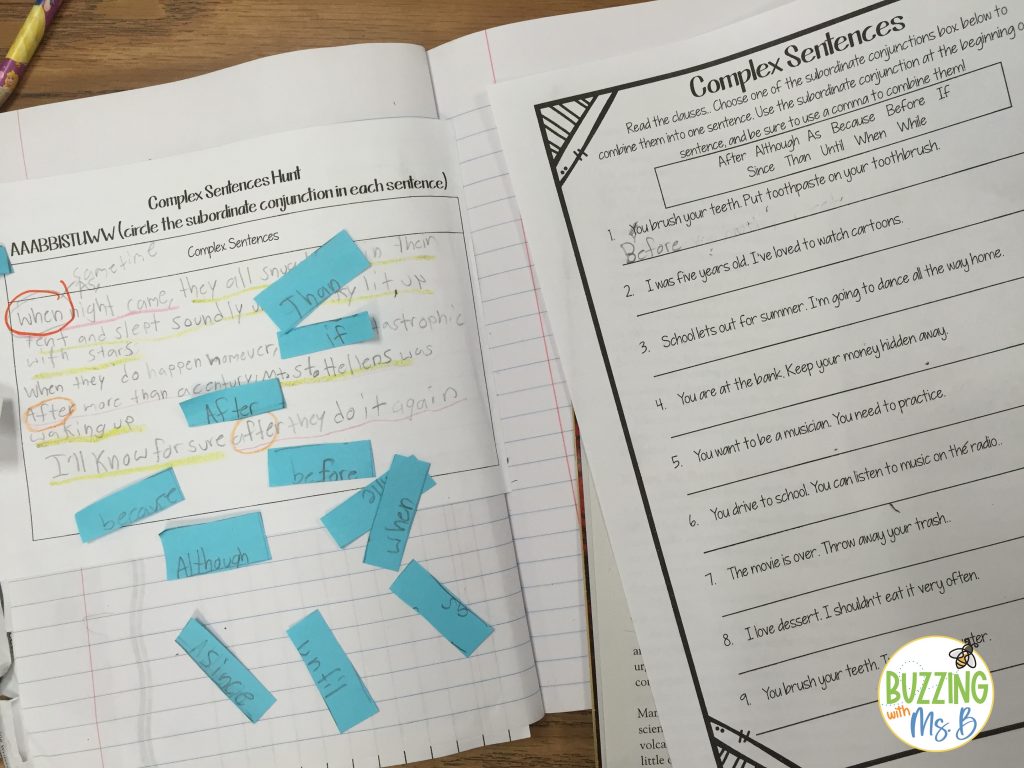 Complex Sentences Hunt
AAABBISTUWW (circle the subordinate conjunction in each sentence)
Complex Sentences
sometime
When night came they all in their
tent and slept soundly lit up
with stars.
When they do happen however,
After more than a century, Mt. St. Hellens was
waking up
I'll know for sure after they do it again
Than
if
After
before
because
when
Although
as
Since
until
Complex Sentences
Read the clauses. Choose one of the subordinate conjunctions box below to
combine them into one sentence. Use the subordinate conjunction at the beginning o
sentence, and be sure to use a comma to combine them!
After Although As Because Before If
Since Than Until When While
1. You brush your teeth. Put toothpaste on your toothbrush.
Before
2. I was five years old. I've loved to watch cartoons.
3. School lets out for summer. I'm going to dance all the way home.
4. You are at the bank. Keep your money hidden away.
5. You want to be a musician. You need to practice.
6. You drive to school. You can listen to music on the radio..
7. The movie is over. Throw away your trash..
8. I love dessert. I shouldn't eat it very often.
9. You brush your teeth.
BUZZING
with
Ms. B